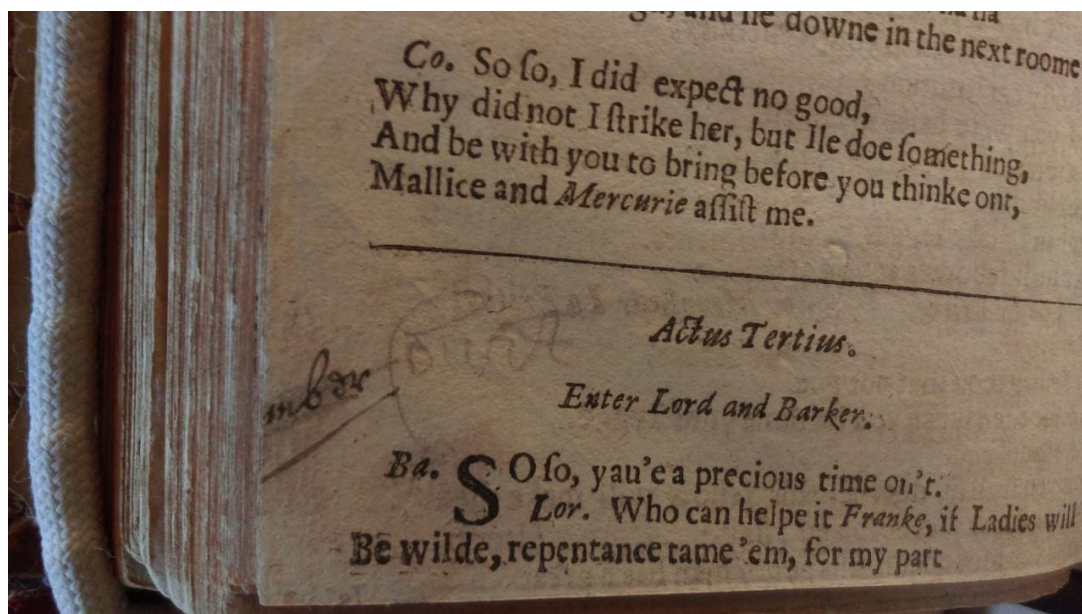 downe in the next roome
Co. So ſo, I did expect no good,
Why did not I ſtrike her, but Ile doe ſomething,
And be with you to bring before you thinke ont,
Mallice and Mercurie aſſiſt me.
Actus Tertius.
mber
Enter Lord and Barker.
Ba. SO ſo, yau'e a precious time on't.
Lor. Who can helpe it Franke, if Ladies will
Be wilde, repentance tame 'em, for my part